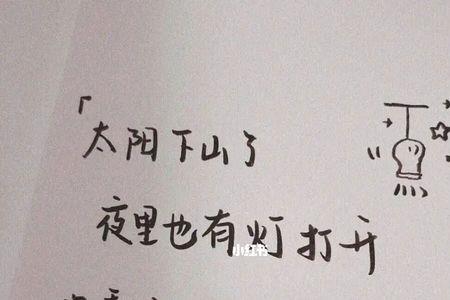 「太阳下山了
夜里也有灯打开
小红书